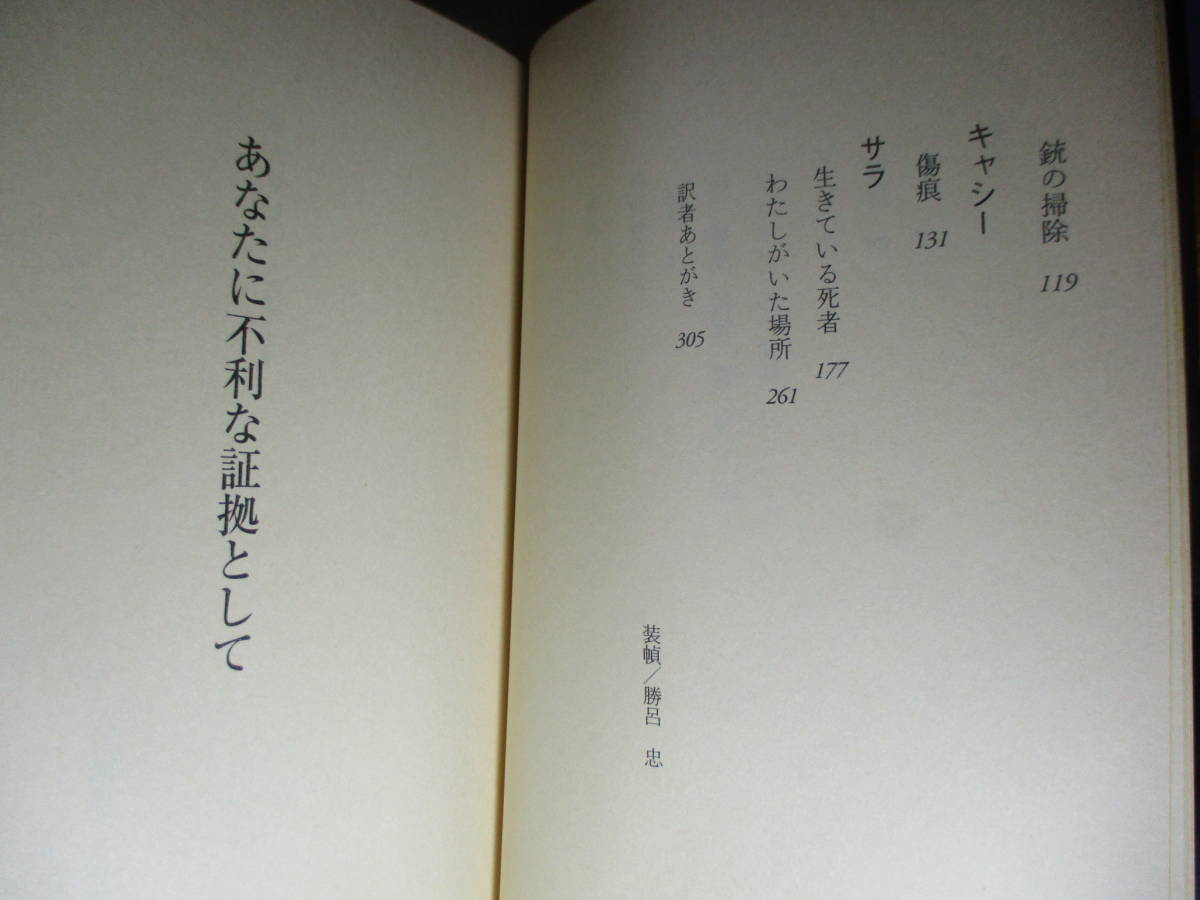 銃の掃除 119
キャシー
傷痕 131
サラ
生きている死者 177
わたしがいた場所 261
訳者あとがき 305
装幀/勝呂 忠
あなたに不利な証拠として